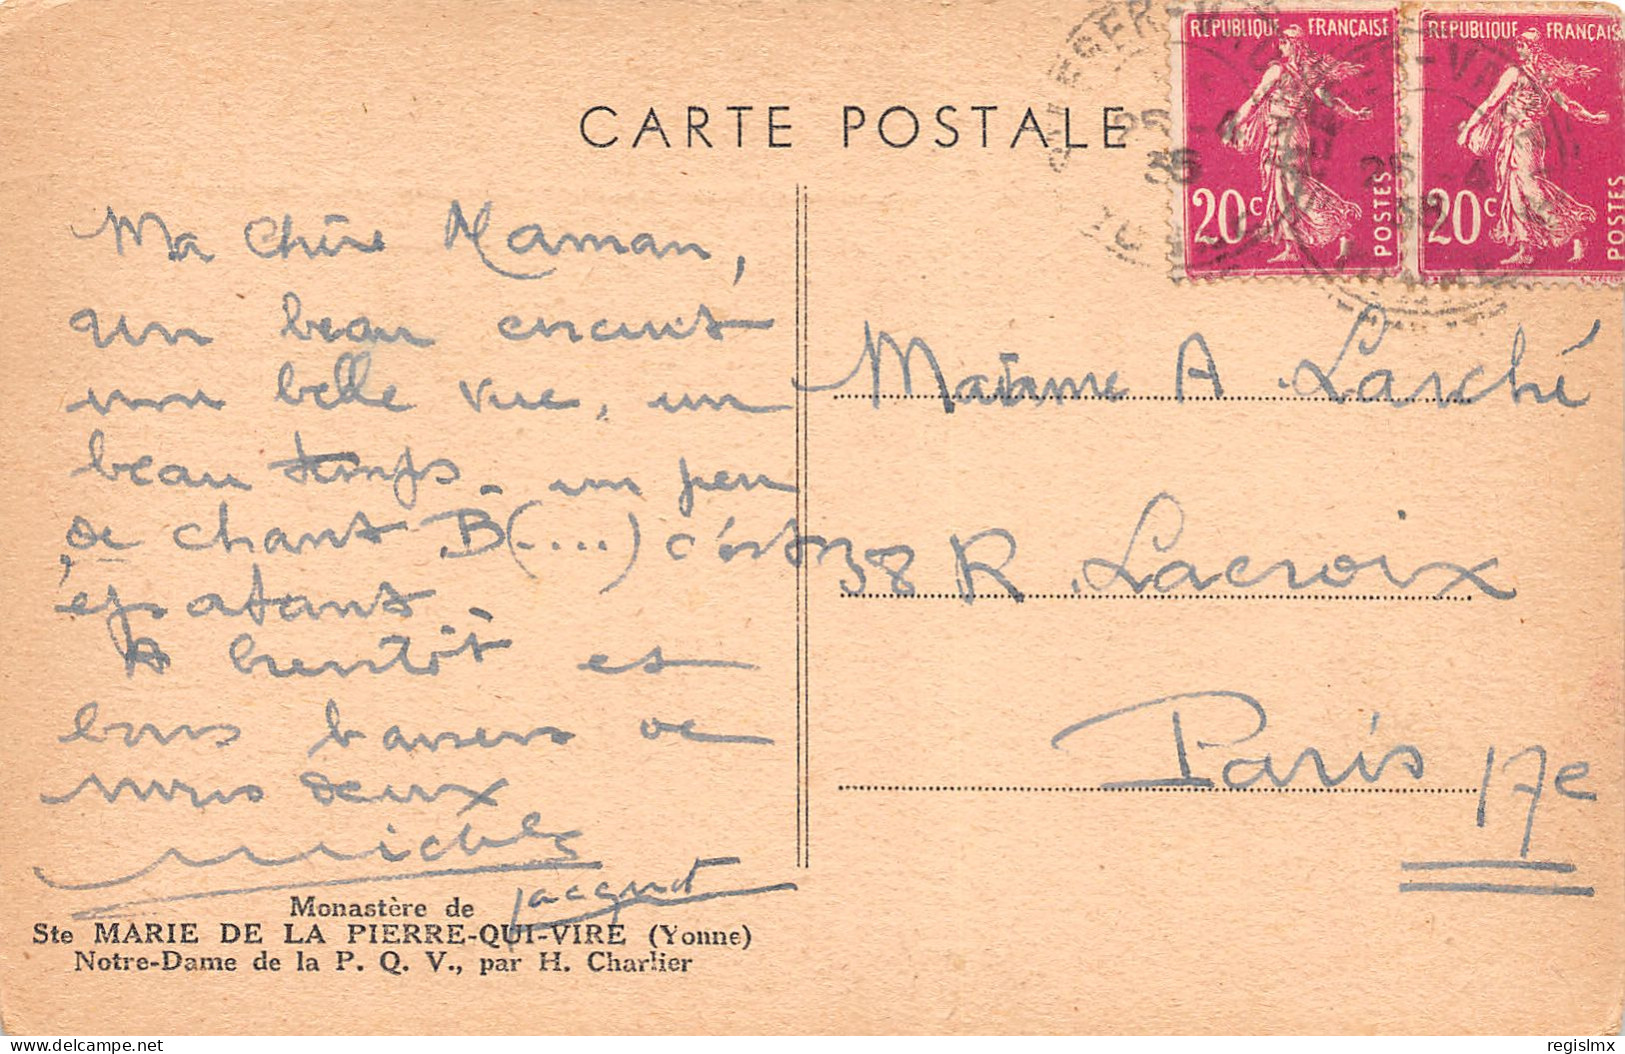 CARTE POSTALE
RÉPUBLIQUE FRANÇAISE
20c
POSTES
RÉPUBLIQUE FRANÇAISE
20c
POSTES
25 - 4
36
Ma chère Maman,
un beau circuit
une belle vue, un
beau temps - un peu
de chant B(....) c'est
épatant.
A bientôt et
bons baisers de
nous deux
Michel
Jacquot
Madame A Larché
38 R Lacroix
Paris 17e
Monastère de
Ste MARIE DE LA PIERRE-QUI-VIRE (Yonne)
Notre-Dame de la P. Q. V., par H. Charlier
delcampe.net
regislmx